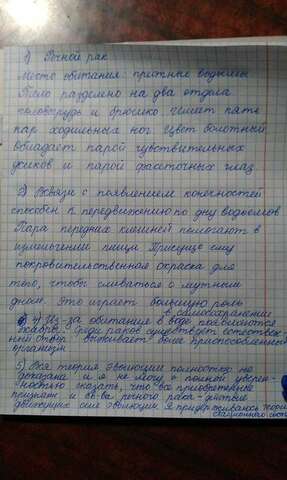 1) Речной рак
Место обитания: притные водоемы
Тело разделено на два отдела
головогрудь и брюшко Имеет пять
пар ходильных ног. Цвет болотный
Обладает парой чувствительных
усиков и парой фасеточных глаз
2) Вквязи с появлением конечностей
способен к передвижению по дну водоемов
Пара передних клешней помогают в
измельчении пищи Присуще ему
покровительственная окраска для
того, чтобы сливаться с мутным
дном. Это играет большую роль
в самосохранении
4) Из-за обитания в воде появляются
жабры. Среди раков существует естествен-
ный отбор выживает более приспособленный
организм
5) Вся теория эволюции полностью не
доказана и я не могу с полной уверен-
ностью сказать, что все приобретенные
признаки и св-ва речного рака-
движущих сил эволюции. Я придерживаюсь теории